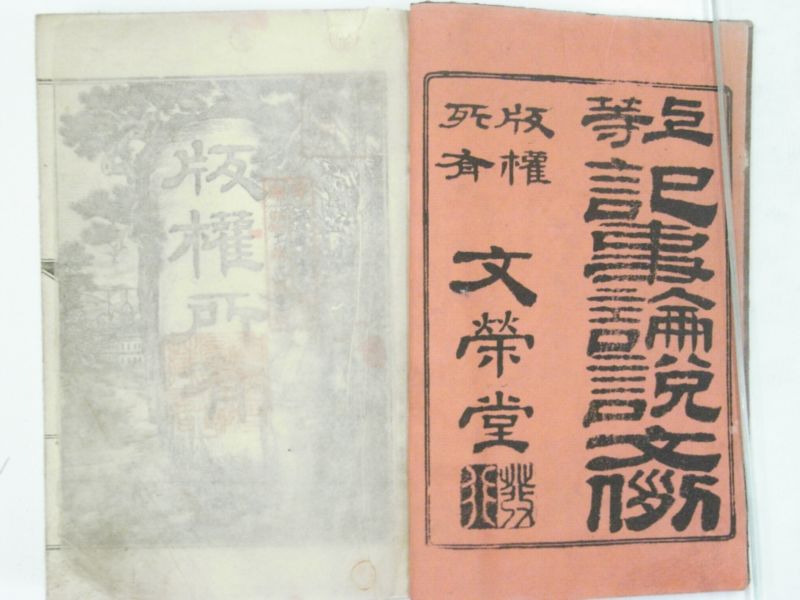 上等 記事論說文例
版權
所有
文榮堂
版權所有